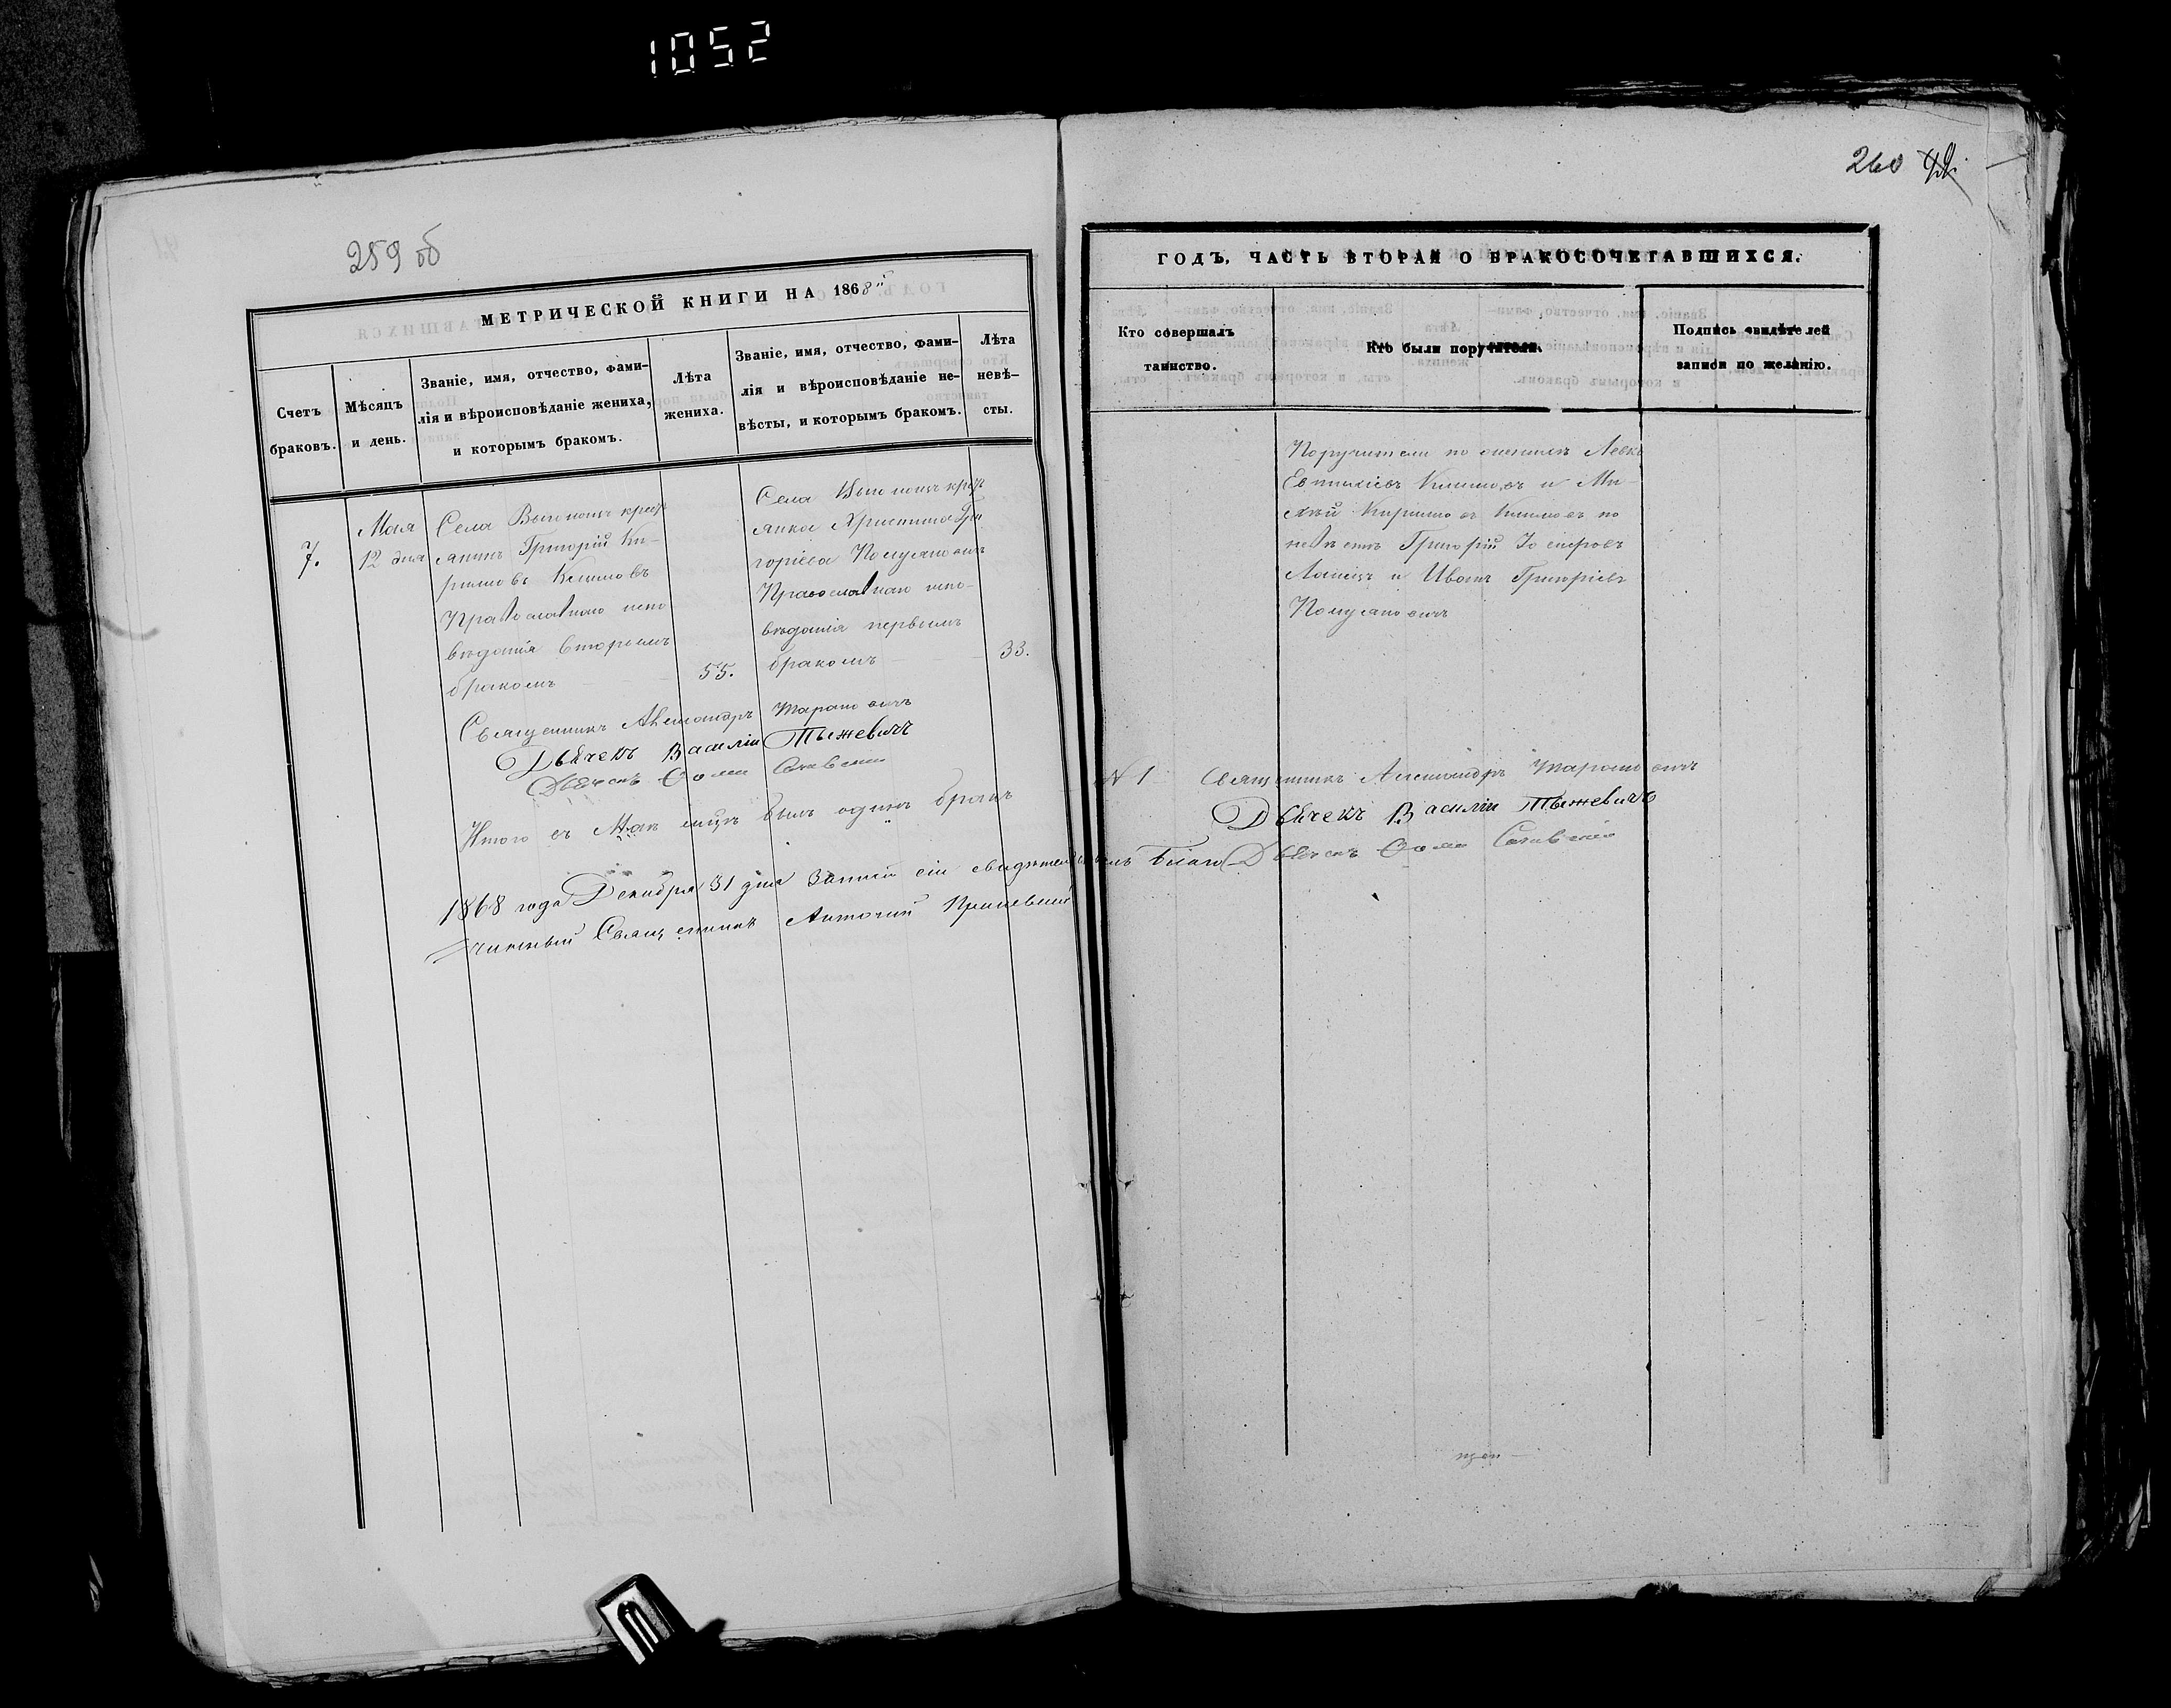 1052
259 об
МЕТРИЧЕСКОЙ КНИГИ НА 1868
Счетъ браковъ.
Мѣсяцъ и день.
Званіе, имя, отчество, фами-
лія и вѣроисповѣданіе жениха,
и которымъ бракомъ.
Лѣта жениха.
Званіе, имя, отчество, фами-
лія и вѣроисповѣданіе не-
вѣсты, и которымъ бракомъ.
Лѣта невѣ-
сты.
7.
Мая
12 дня
Села
анинъ Григорій Ки-
рилловъ Климовъ
Православнаго испо
вѣданія вторымъ
бракомъ
55.
Села
анка Христина Гри
горіева
Православнаго испо-
вѣданія первымъ
бракомъ
33.
Священникъ Александръ Тарановичъ
Дьячекъ Василій Тыжевичъ
Дьячекъ Ѳома
Итого въ Маѣ мцѣ былъ одинъ бракъ
1868 года Декабря 31 дня Записи сіи свидѣтельствовалъ Благо
чинный Священникъ Антоній
260
ГОДЪ, ЧАСТЬ ВТОРАЯ О БРАКОСОЧЕТАВШИХСЯ.
Кто совершалъ
таинство.
Кто были поручители.
Подпись свидѣтелей
записи по желанію.
Поручители по женихѣ Левко
Евтихіевъ Климовъ и Ми-
хей Кирилловъ Климовъ по
невѣстѣ Григорій Іосифовъ
и Иванъ Григоріевъ
N 1
Священникъ Александръ Тарановичъ
Дьячекъ Василій Тыжевичъ
Дьячекъ Ѳома